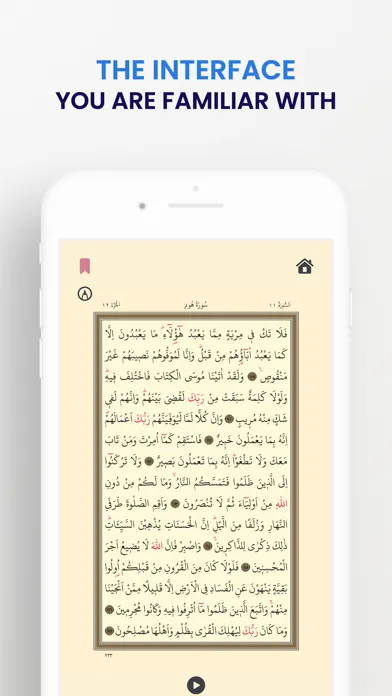 THE INTERFACE
YOU ARE FAMILIAR WITH
اَلسُّورَةُ ١١ سُورَةُ هُودٍ اَلْجُزْءُ ١٢
فَلَا تَكُ ف۪ي مِرْيَةٍ مِمَّا يَعْبُدُ هٰٓؤُ۬لَٓاءِۜ مَا يَعْبُدُونَ اِلَّا
كَمَا يَعْبُدُ اٰبَٓاؤُ۬هُمْ مِنْ قَبْلُۜ وَاِنَّا لَمُوَفُّوهُمْ نَص۪يبَهُمْ غَيْرَ
مَنْقُوصٍ۟ وَلَقَدْ اٰتَيْنَا مُوسَى الْكِتَابَ فَاخْتُلِفَ ف۪يهِۜ
وَلَوْلَا كَلِمَةٌ سَبَقَتْ مِنْ رَبِّكَ لَقُضِيَ بَيْنَهُمْۜ وَاِنَّهُمْ لَف۪ي
شَكٍّ مِنْهُ مُر۪يبٍ وَاِنَّ كُلًّا لَمَّا لَيُوَفِّيَنَّهُمْ رَبُّكَ اَعْمَالَهُمْۜ
اِنَّهُ بِمَا يَعْمَلُونَ خَب۪يرٌ فَاسْتَقِمْ كَمَٓا اُمِرْتَ وَمَنْ تَابَ
مَعَكَ وَلَا تَطْغَوْاۜ اِنَّهُ بِمَا تَعْمَلُونَ بَص۪يرٌ وَلَا تَرْكَنُٓوا
اِلَى الَّذ۪ينَ ظَلَمُوا فَتَمَسَّكُمُ النَّارُۙ وَمَا لَكُمْ مِنْ دُونِ
اللّٰهِ مِنْ اَوْلِيَٓاءَ ثُمَّ لَا تُنْصَرُونَ وَاَقِمِ الصَّلٰوةَ طَرَفَيِ
النَّهَارِ وَزُلَفًا مِنَ الَّيْلِۜ اِنَّ الْحَسَنَاتِ يُذْهِبْنَ السَّيِّـَٔاتِۜ
ذٰلِكَ ذِكْرٰى لِلذَّاكِر۪ينَۚ وَاصْبِرْ فَاِنَّ اللّٰهَ لَا يُض۪يعُ اَجْرَ
الْمُحْسِن۪ينَ فَلَوْلَا كَانَ مِنَ الْقُرُونِ مِنْ قَبْلِكُمْ اُو۬لُوا
بَقِيَّةٍ يَنْهَوْنَ عَنِ الْفَسَادِ فِي الْاَرْضِ اِلَّا قَل۪يلًا مِمَّنْ اَنْجَيْنَا
مِنْهُمْۚ وَاتَّبَعَ الَّذ۪ينَ ظَلَمُوا مَٓا اُتْرِفُوا ف۪يهِ وَكَانُوا مُجْرِم۪ينَ
وَمَا كَانَ رَبُّكَ لِيُهْلِكَ الْقُرٰى بِظُلْمٍ وَاَهْلُهَا مُصْلِحُونَ
٢٣٣